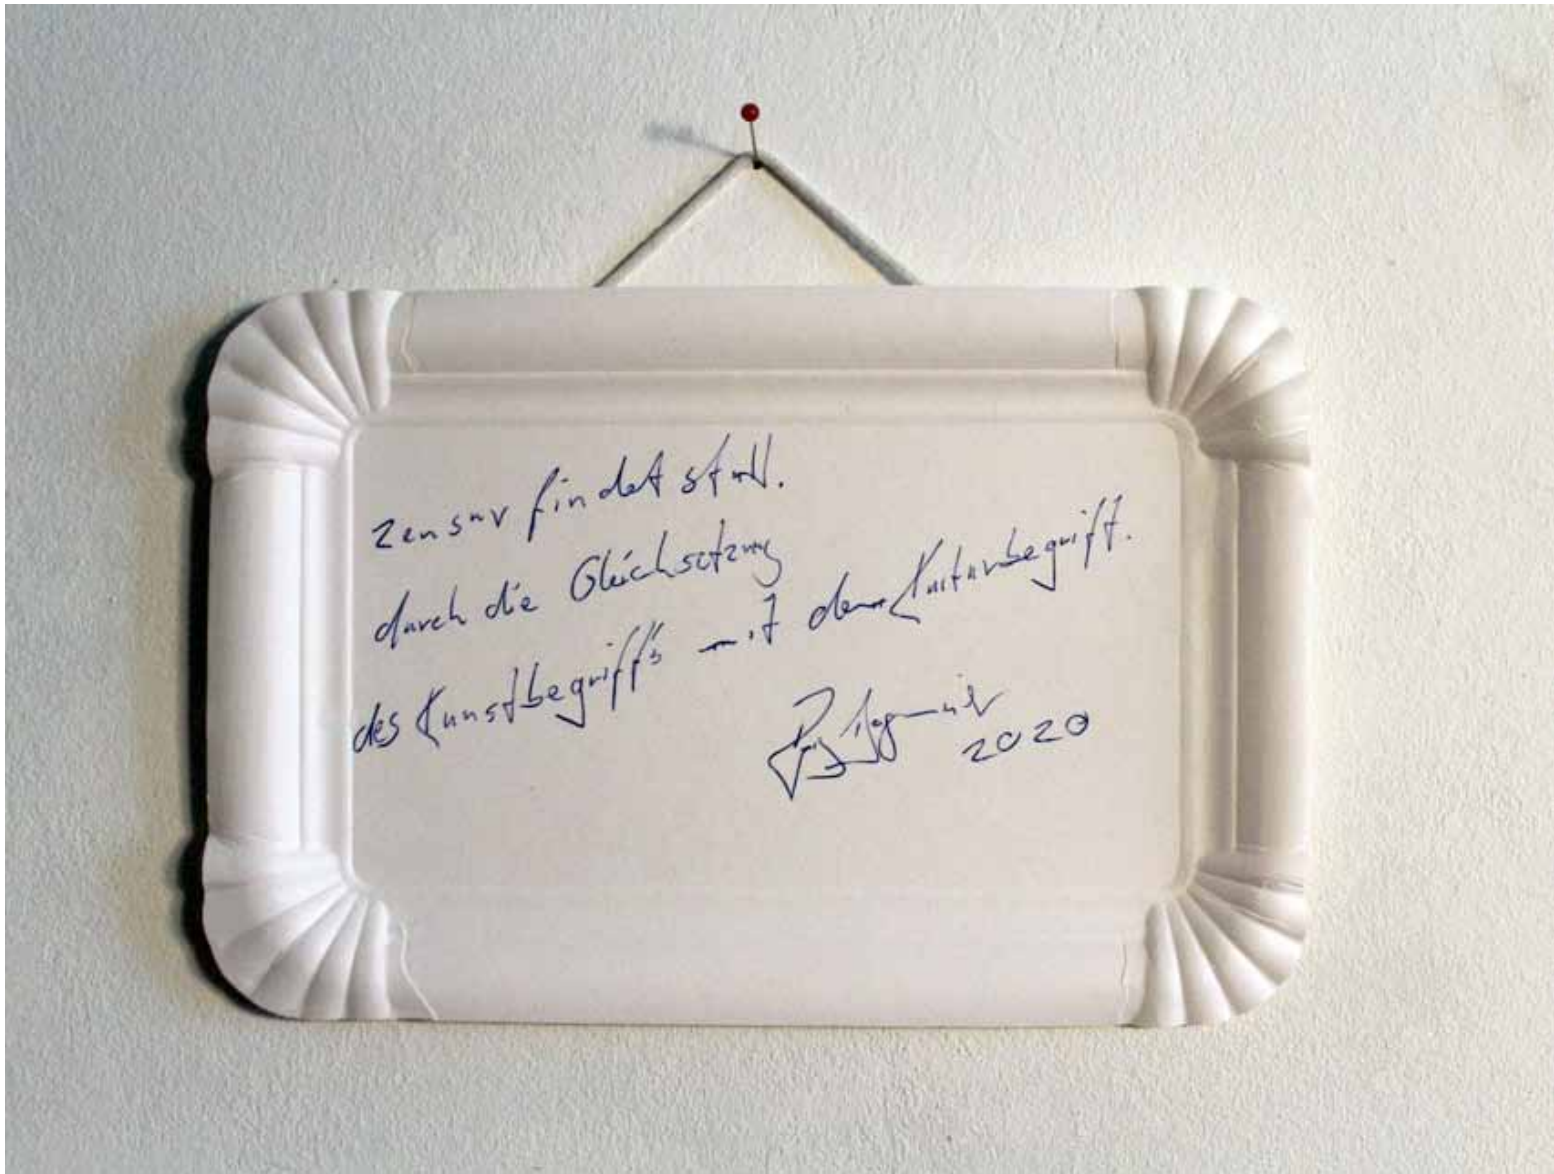 zensur findet statt.
durch die Gleichsetzung
des Kunstbegriffs mit dem Kulturbegriff.
2020